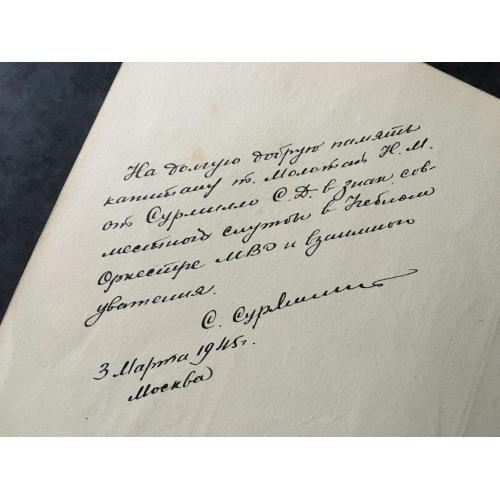 На долгую добрую память
капитану т. Молотай Н.М.
от Сурмилло С.Д. в знак сов-
местной службы в Учебном
Оркестре МВО и взаимного
уважения.
С. Сурмилло
3 Марта 1945г.
Москва